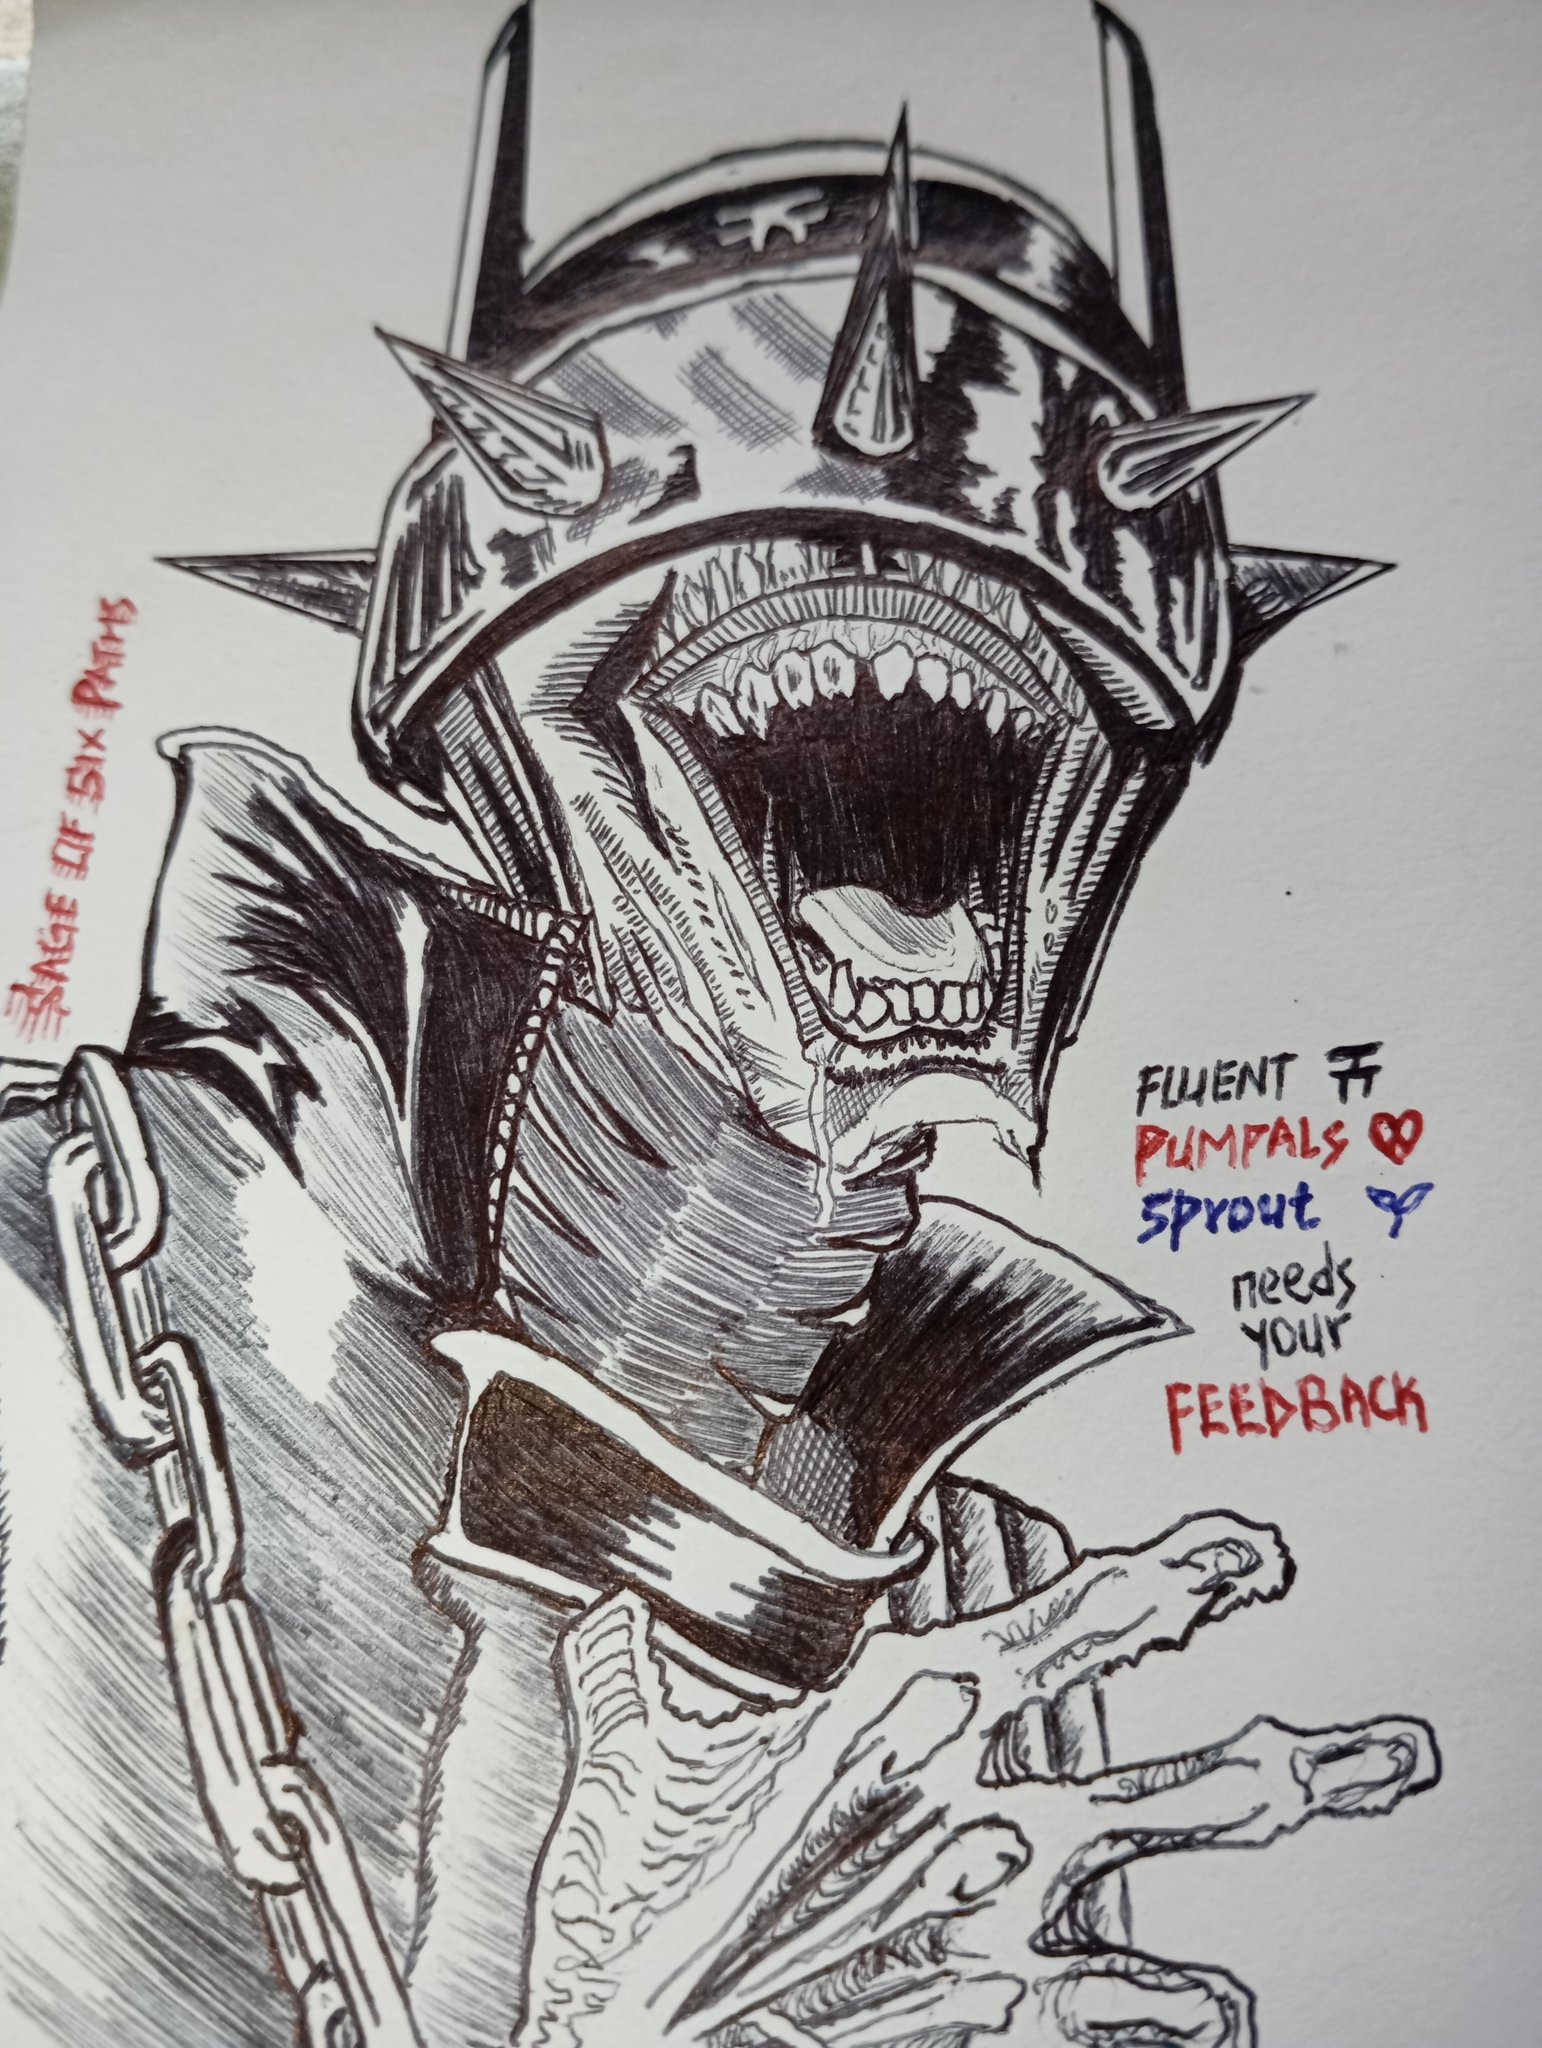 SAGE OF SIX PATHS
FLUENT
PUMPALS
sprout
needs
your
FEEDBACK